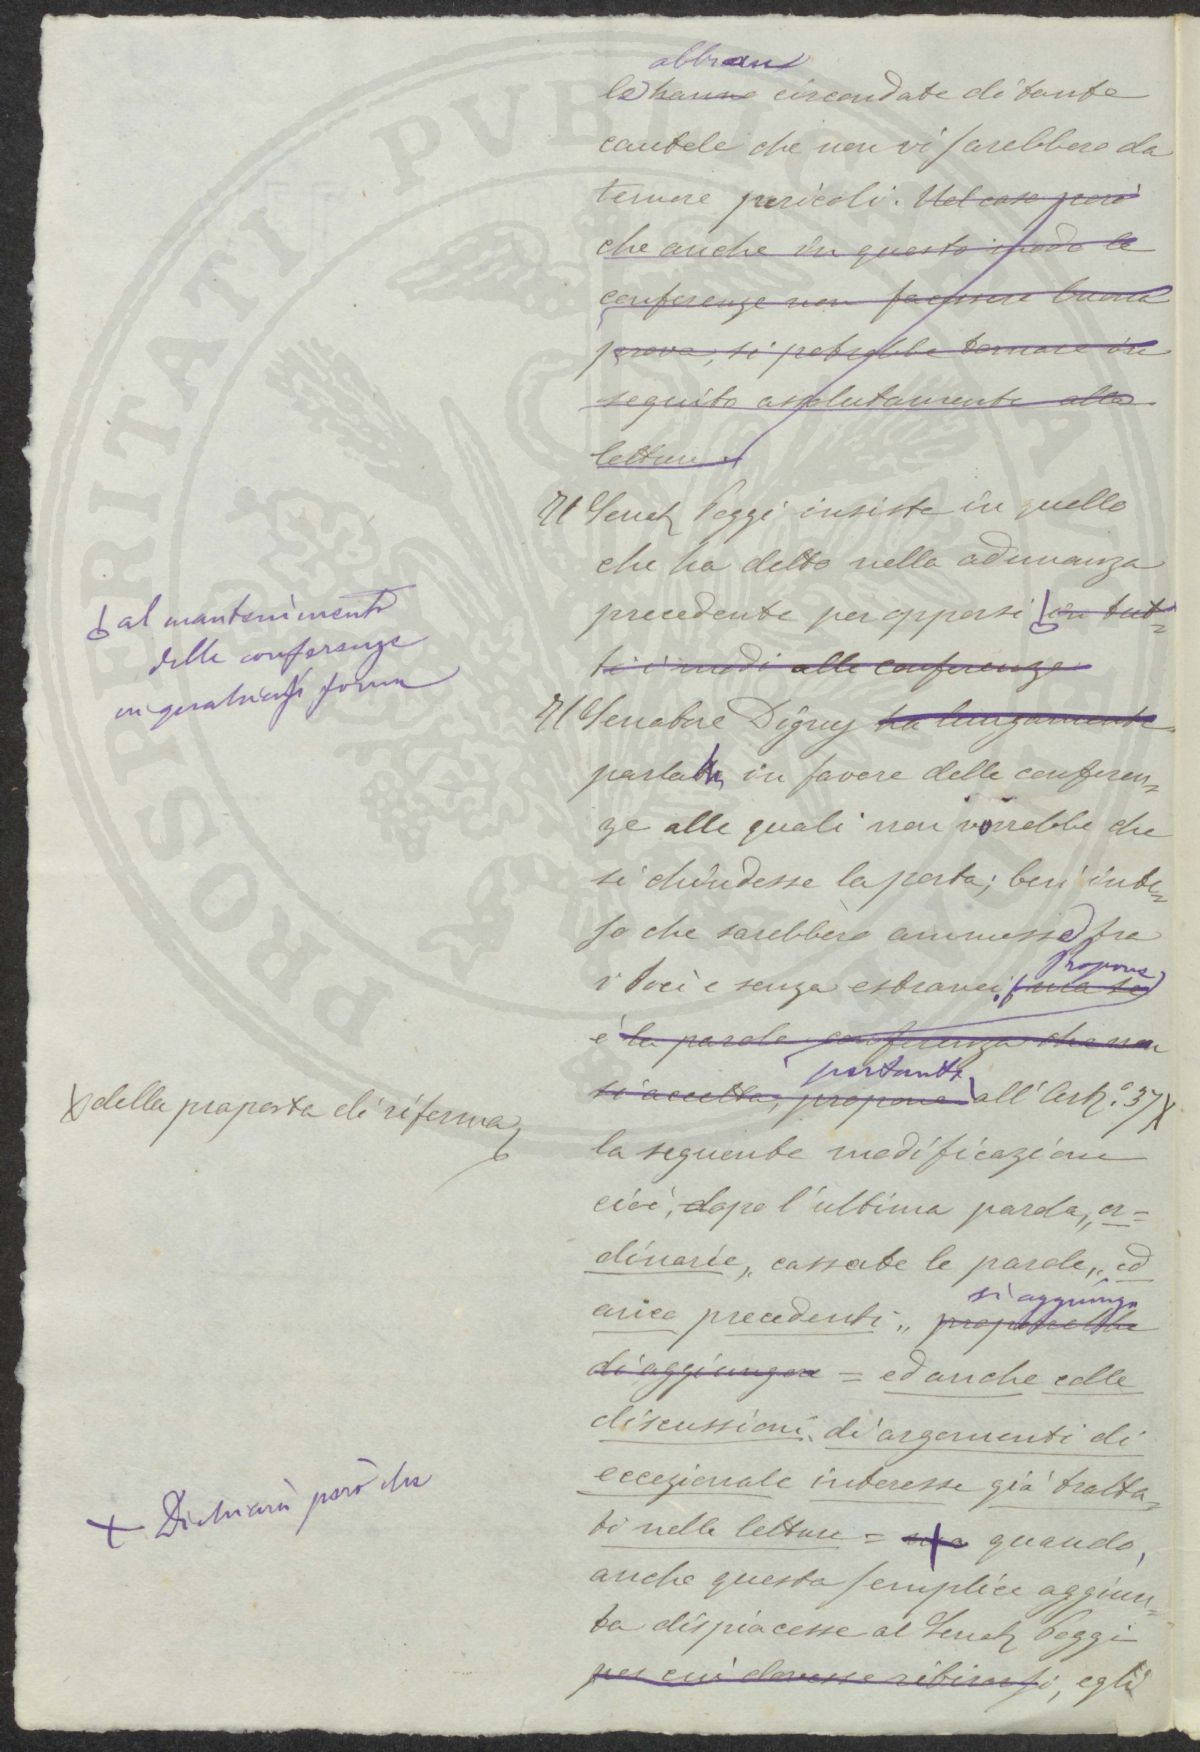 abbian
le hanno circondate di tante
cautele che non vi sarebbero da
temere pericoli. Nel caso però
che anche in questo modo le
conferenze non facessero buona
prova, si potrebbe tornare in
seguito assolutamente alle
letture.
Il Senat. Poggi insiste in quello
che ha detto nella adunanza
precedente per opporsi in tut=
ti i modi alle conferenze
al mantenimento
delle conferenze
in qualsiasi forma
Il Senatore Digny ha lungamente
parlato in favore delle conferen=
ze alle quali non vorrebbe che
si chiudesse la porta; ben inte=
so che sarebbero ammesse fra
i Soci e senza estranei; ma se
propone
è la parola conferenza che non
si accetta, propone all'Art.° 37
pertanto
della proposta di riforma
la seguente modificazione
cioè, dopo l'ultima parola „or=
dinarie„ cassate le parole „ed
anico precedenti„ proporrebbe
si aggiunga
di aggiungere = ed anche colle
discussioni di argomenti di
eccezionale interesse già tratta=
ti nelle letture = ma quando,
+ Dichiarò però che
anche questa semplice aggiun=
ta dispiacesse al Senat. Poggi
per cui dovesse ritirarsi, egli
PROSPERITATI PUBLICAE